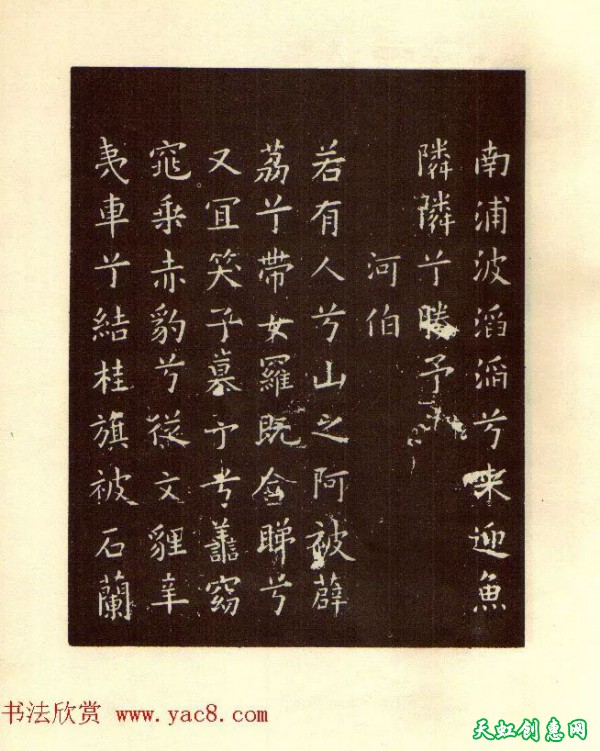 南浦波滔滔兮来迎魚
隣隣兮勝予
河伯
若有人兮山之阿被薜
荔兮帶女羅既含睇兮
又冝笑子慕予兮譱窈
窕乗赤豹兮從文貍辛
夷車兮結桂旗被石蘭
书法欣赏 www.yac8.com
天虹创意网